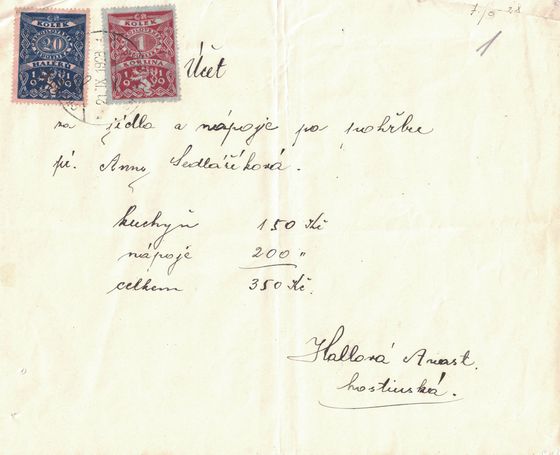 7/9-28
1
ČSR
KOLEK
20
HALÉŘŮ
ČSR
KOLEK
1
KORUNA
Účet
na jídla a nápoje po pohřbu
pí. Anny Sedlaříková.
kuchyň 150 Kč
nápoje 200 "
celkem 350 Kč.
Hallová Anast.
hostinská.